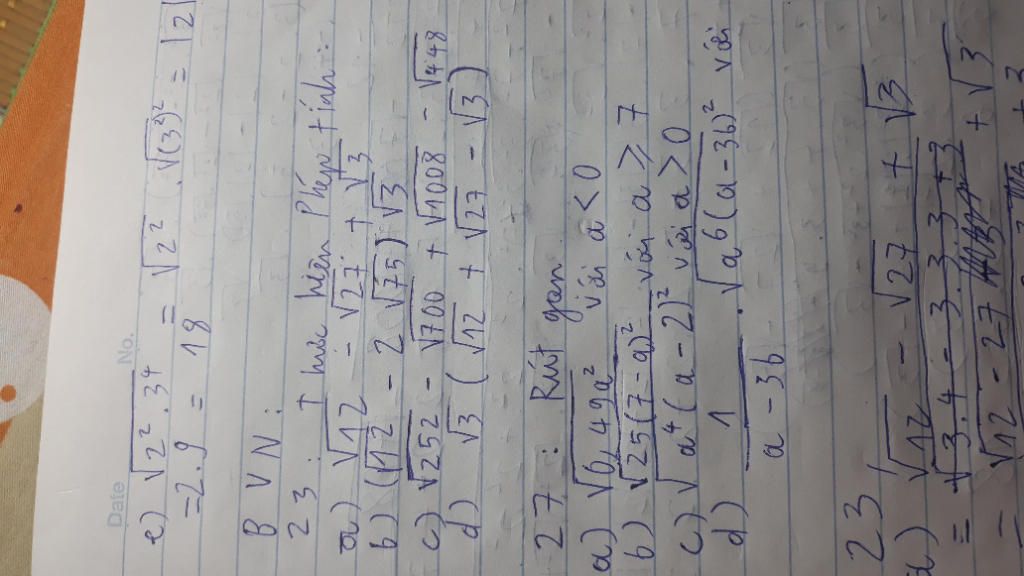 Date No.
e) √2² . 3⁴ = √2² . √(3²)² = |2|
= 2 . 9 = 18
B V N :
23 : Thực hiện Phép tính :
a) √12 - √27 + √3
b) (√12 - 2 √75) √3
c) √252 - √700 + √1008 - √448
d) √3 ( √12 + √27 - √3 )
27 : Rút gọn
a) √6,49a² với a < 0
b) √25(7-a)² với a ≥ 7
c) √a⁴(a-2)² với a > 0
d) 1/(a-3b) . √a⁶(a-3b)² với
23
a) √12 - √27 + √3
= √3.4 - 3.3.3 + 3
= √12 - 27 + √3